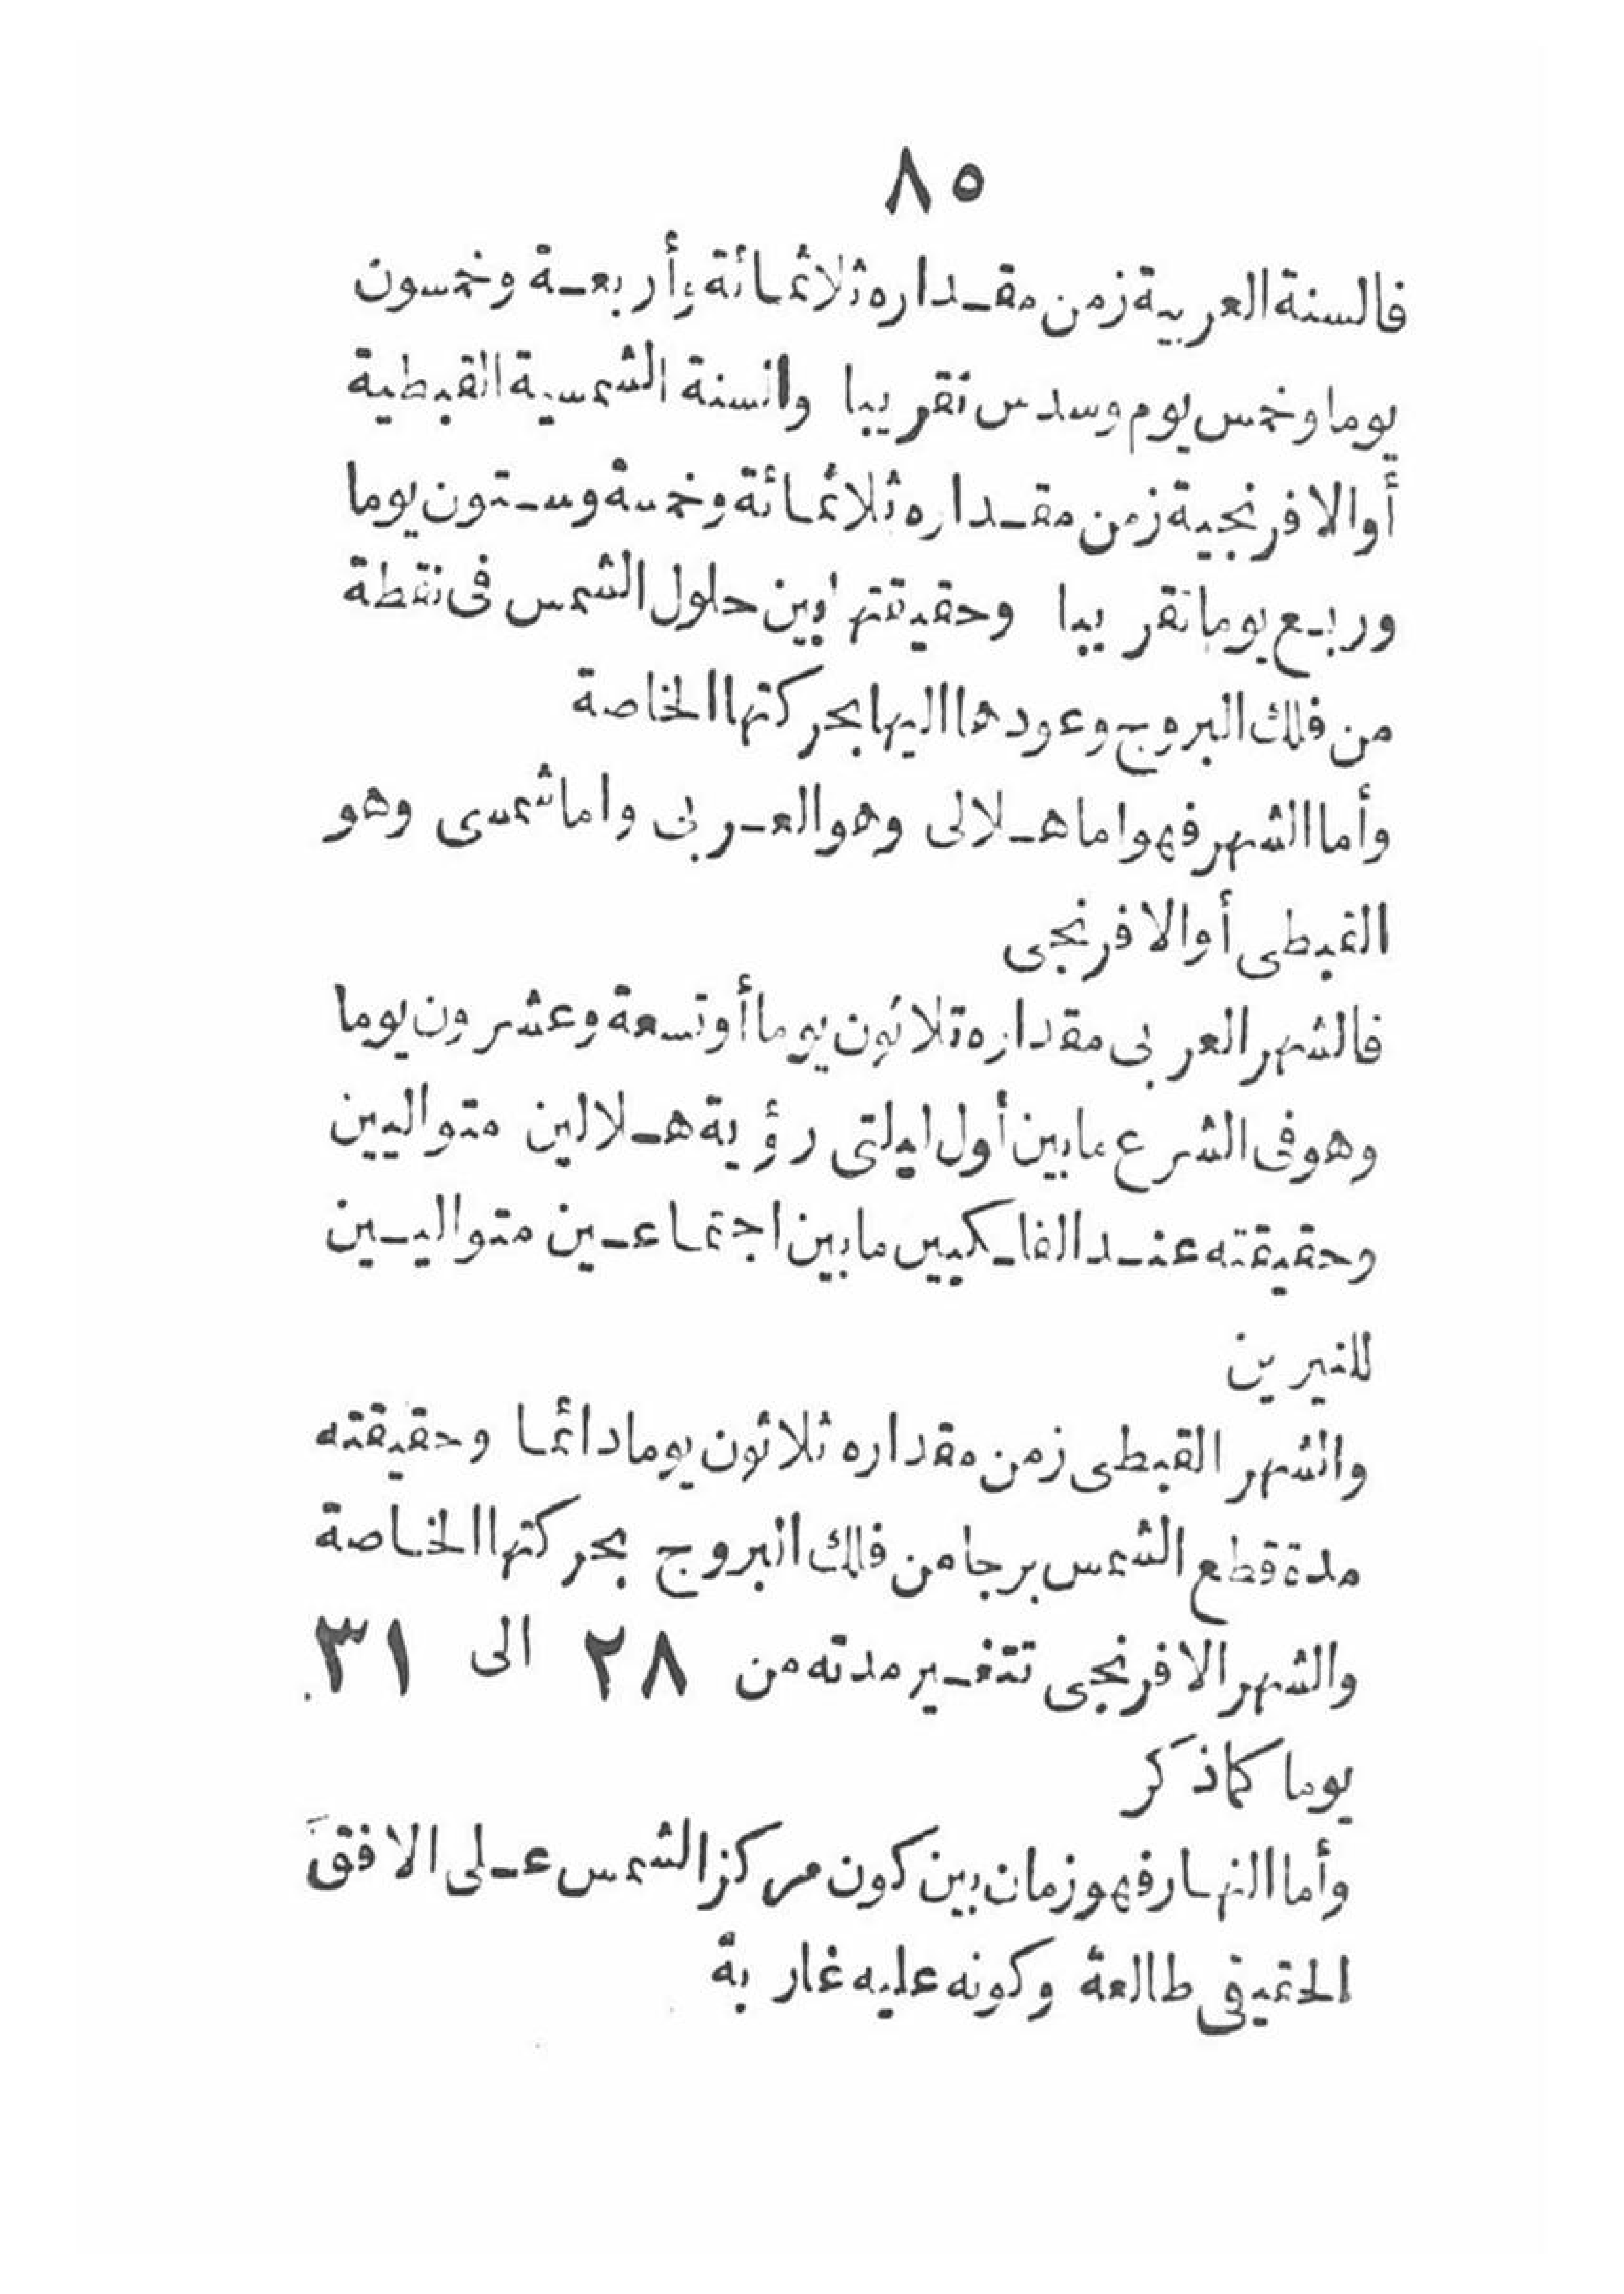 ٨٥
فالسنة العربية زمن مقداره ثلاثمائة وأربعة وخمسون
يوما وخمس يوم وسدس تقريبا والسنة الشمسية القبطية
أوالافرنجية زمن مقداره ثلاثمائة وخمسة وستون يوما
وربع يوما تقريبا وحقيقتها بين حلول الشمس فى نقطة
من فلك البروج وعودها اليها بحركتها الخاصة
وأما الشهر فهو اما هلالى وهو العربى واما شمسى وهو
القبطى أوالافرنجى
فالشهر العربى مقداره ثلاثون يوما أوتسعة وعشرون يوما
وهو فى الشرع ما بين أول ليلتى رؤية هلالين متواليين
وحقيقته عند الفلكيين ما بين اجتماعين متواليين
للنيرين
والشهر القبطى زمن مقداره ثلاثون يوما دائما وحقيقته
مدة قطع الشمس برجا من فلك البروج بحركتها الخاصة
والشهر الافرنجى تتغير مدته من ٢٨ الى ٣١
يوما كما ذكر
وأما النهار فهو زمان بين كون مركز الشمس على الافق
الحقيقى طالعة وكونه عليه غاربة